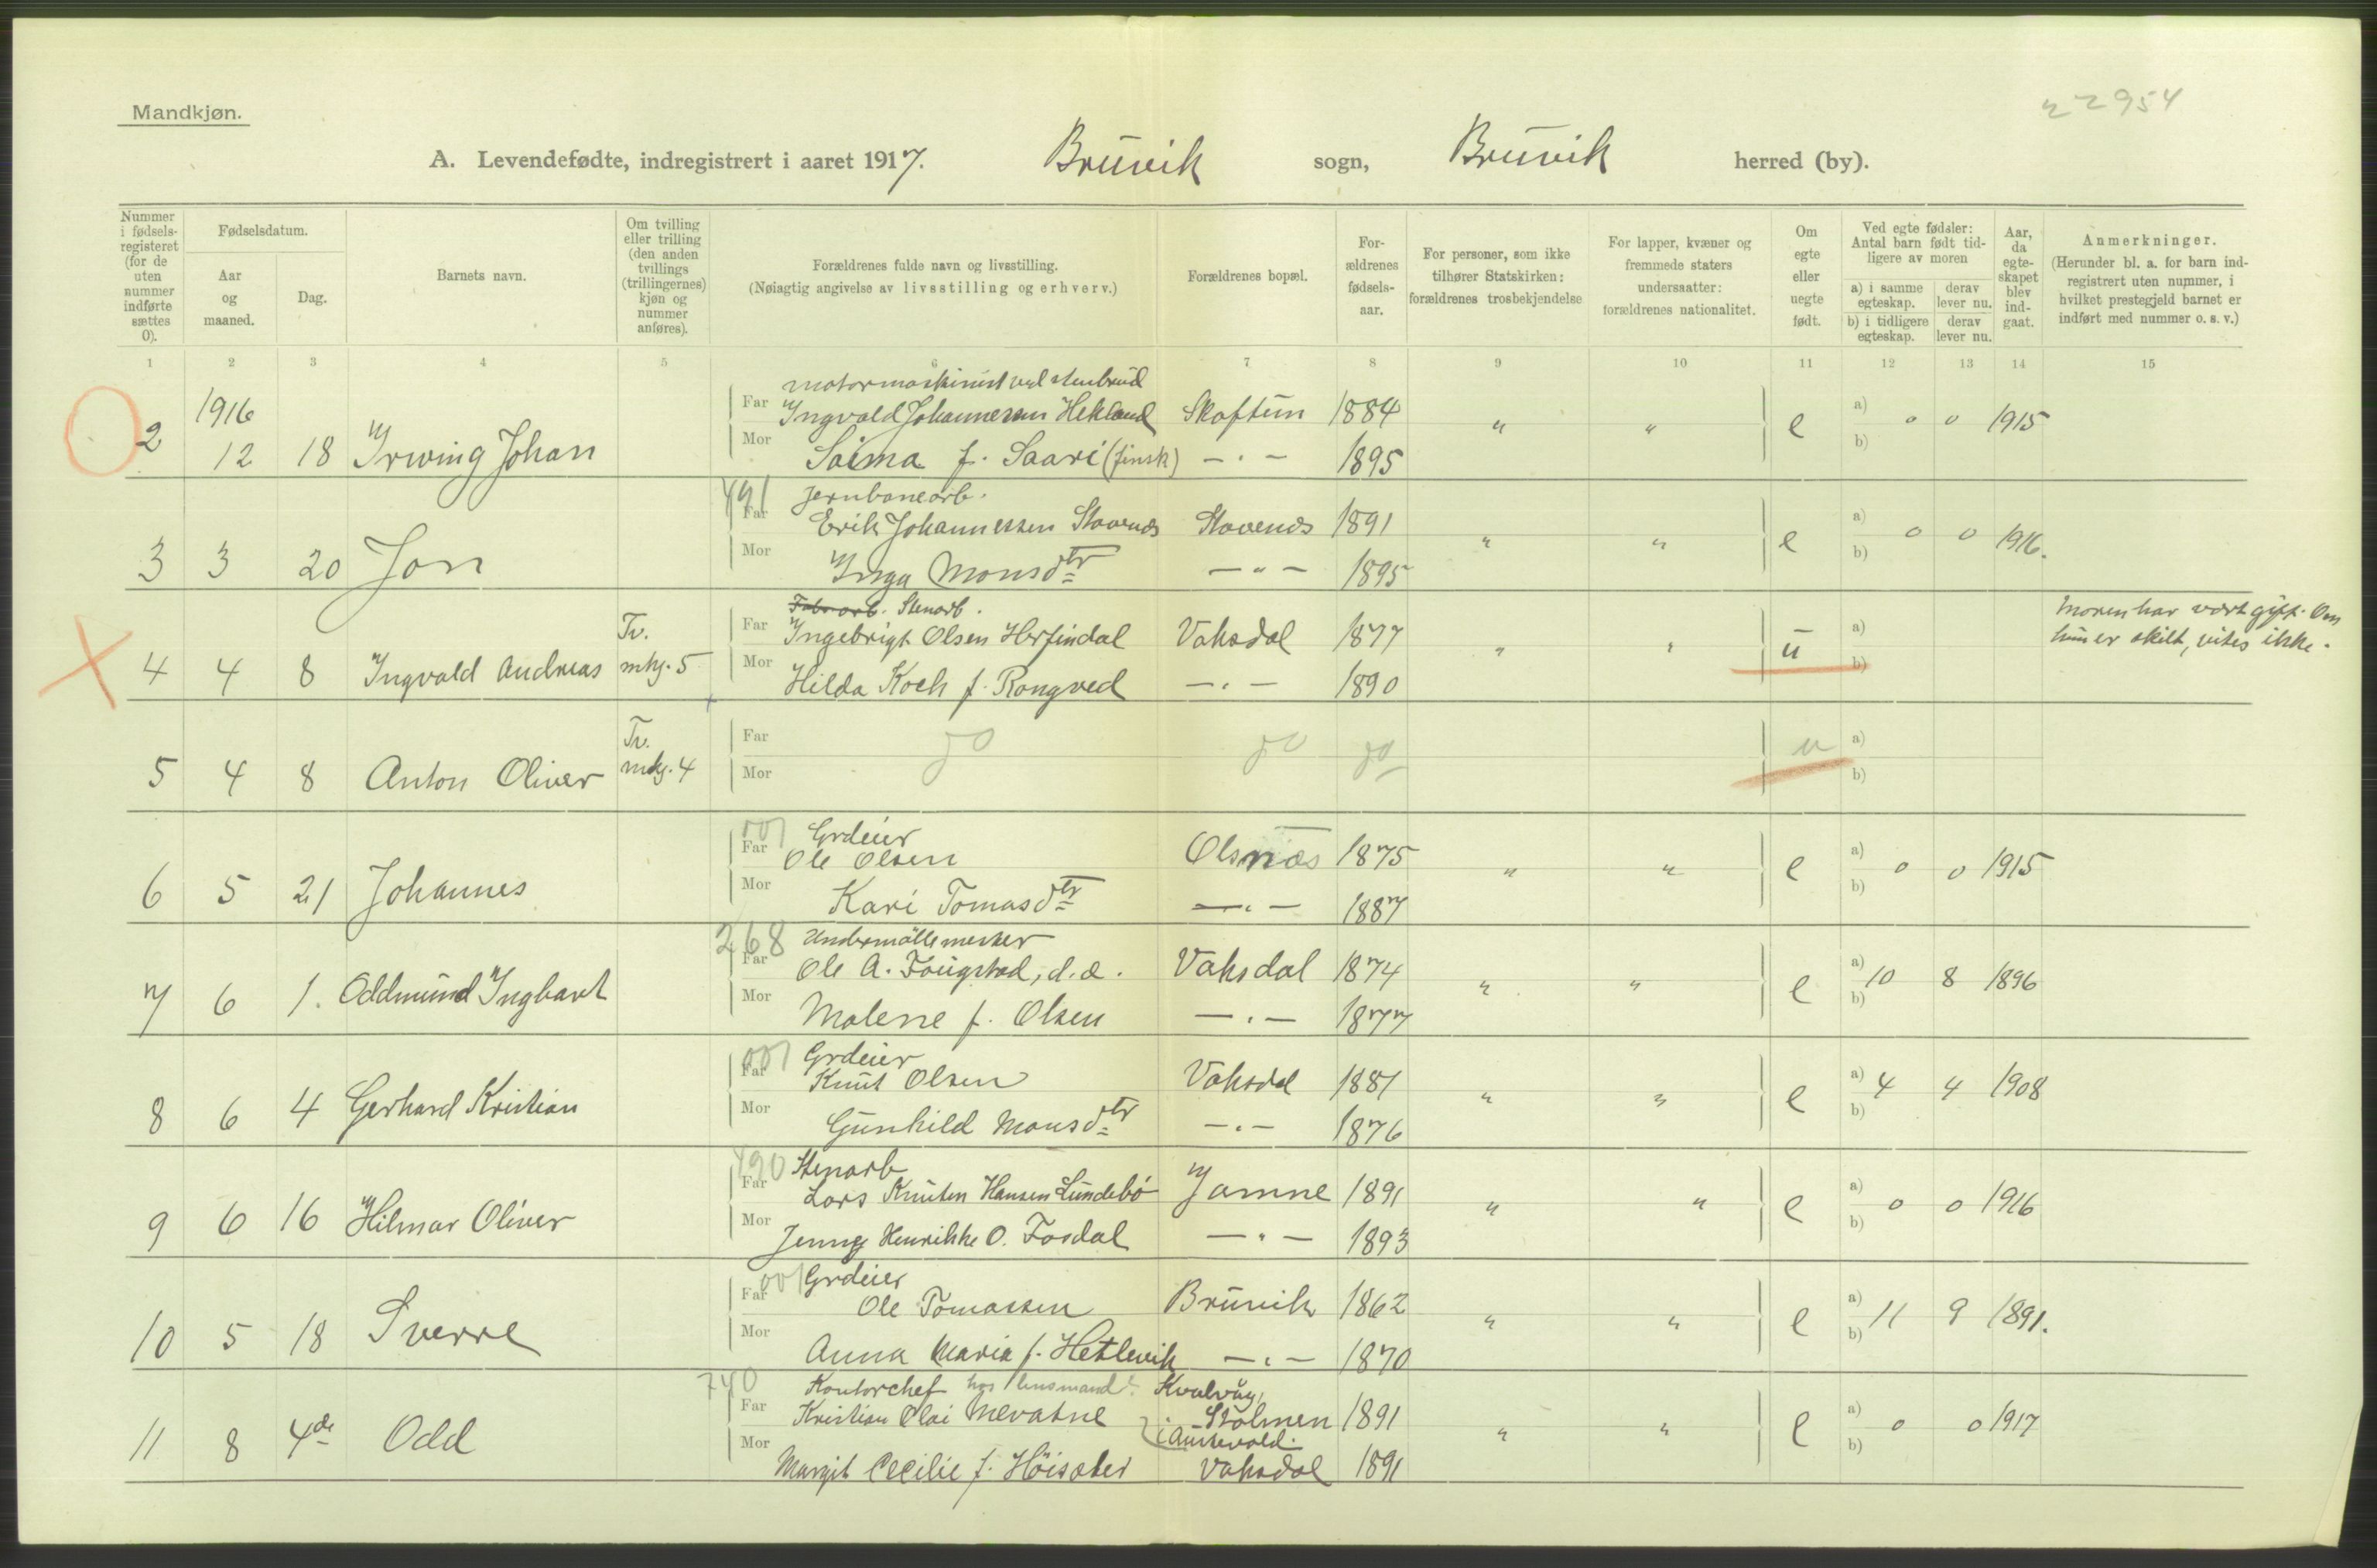 22954
Mandkjøn.
A. Levendefødte, indregistrert i aaret 1917. Bruvik sogn, Bruvik herred (by).
Nummer i fødsels-registeret (for de uten nummer indførte sættes 0).
Fødselsdatum.
Aar og maaned.
Dag.
Barnets navn.
Om tvilling eller trilling (den anden tvillings (trillingernes) kjøn og nummer anføres).
Forældrenes fulde navn og livsstilling. (Nøiagtig angivelse av livsstilling og erhverv.)
Forældrenes bopæl.
For-ældrenes fødsels-aar.
For personer, som ikke tilhører Statskirken: forældrenes trosbekjendelse
For lapper, kvæner og fremmede staters undersaatter: forældrenes nationalitet.
Om egte eller uegte født.
Ved egte fødsler: Antal barn født tid-ligere av moren
a) i samme egteskap. derav lever nu.
b) i tidligere egteskap. derav lever nu.
Aar, da egte-skapet blev ind-gaat.
Anmerkninger. (Herunder bl. a. for barn ind-registrert uten nummer, i hvilket prestegjeld barnet er indført med nummer o. s. v.)
1 2 3 4 5 6 7 8 9 10 11 12 13 14 15
motormaskinist ved stenbrud
2 1916 12 18 Irwing Johan Far Ingvald Johannessen Hekland Skaftun 1884 " " e a) 0 0 1915
Mor Saima f. Saari (finsk) — " — 1895 b)
491 Jernbanearb.
3 3 20 Jon Far Erik Johannessen Stavenes Stavenes 1891 " " e a) 0 0 1916.
Mor Inga Monsdtr — " — 1895 b)
Fabr.arb. Stenarb.
4 4 8 Ingvald Andreas Tv. mkj. 5 Far Ingebrigt Olsen Herfindal Vaksdal 1877 " " u a) Moren har vært gift. Om
Mor Hilda Koch f. Rongved — " — 1890 b) hun er skilt, vites ikke.
5 4 8 Anton Oliver Tv. mkj. 4 Far do do do u a)
Mor b)
001 Grdeier
6 5 21 Johannes Far Ole Olsen Olsnæs 1875 " " e a) 0 0 1915
Mor Kari Tomasdtr — " — 1887 b)
268 Undermøllemester
7 6 1. Oddmund Ingbart Far Ole A. Fougstad, d.æ. Vaksdal 1874 " " e a) 10 8 1896
Mor Malene f. Olsen — " — 1877 b)
001 Grdeier
8 6 4 Gerhard Kristian Far Knut Olsen Vaksdal 1881 " " e a) 4 4 1908
Mor Gunhild Monsdtr — " — 1876 b)
490 Stenarb
9 6 16 Hilmar Oliver Far Lars Knuten Hansen Lundebø Jamne 1891 " " e a) 0 0 1916
Mor Jenny Henrikke O. Fosdal — " — 1893 b)
001 Grdeier
10 5 18 Sverre Far Ole Tomassen Bruvik 1862 " " e a) 11 9 1891.
Mor Anna Maria f. Hetlevik — " — 1870 b)
740 Kontorchef hos lensmand. Kvalvåg,
11 8 4de Odd Far Kristian Olai Mevatne Stolmen 1891 " " e a) 0 0 1917
i Austevold.
Mor Margit Cecilie f. Höisæter Vaksdal 1891 b)